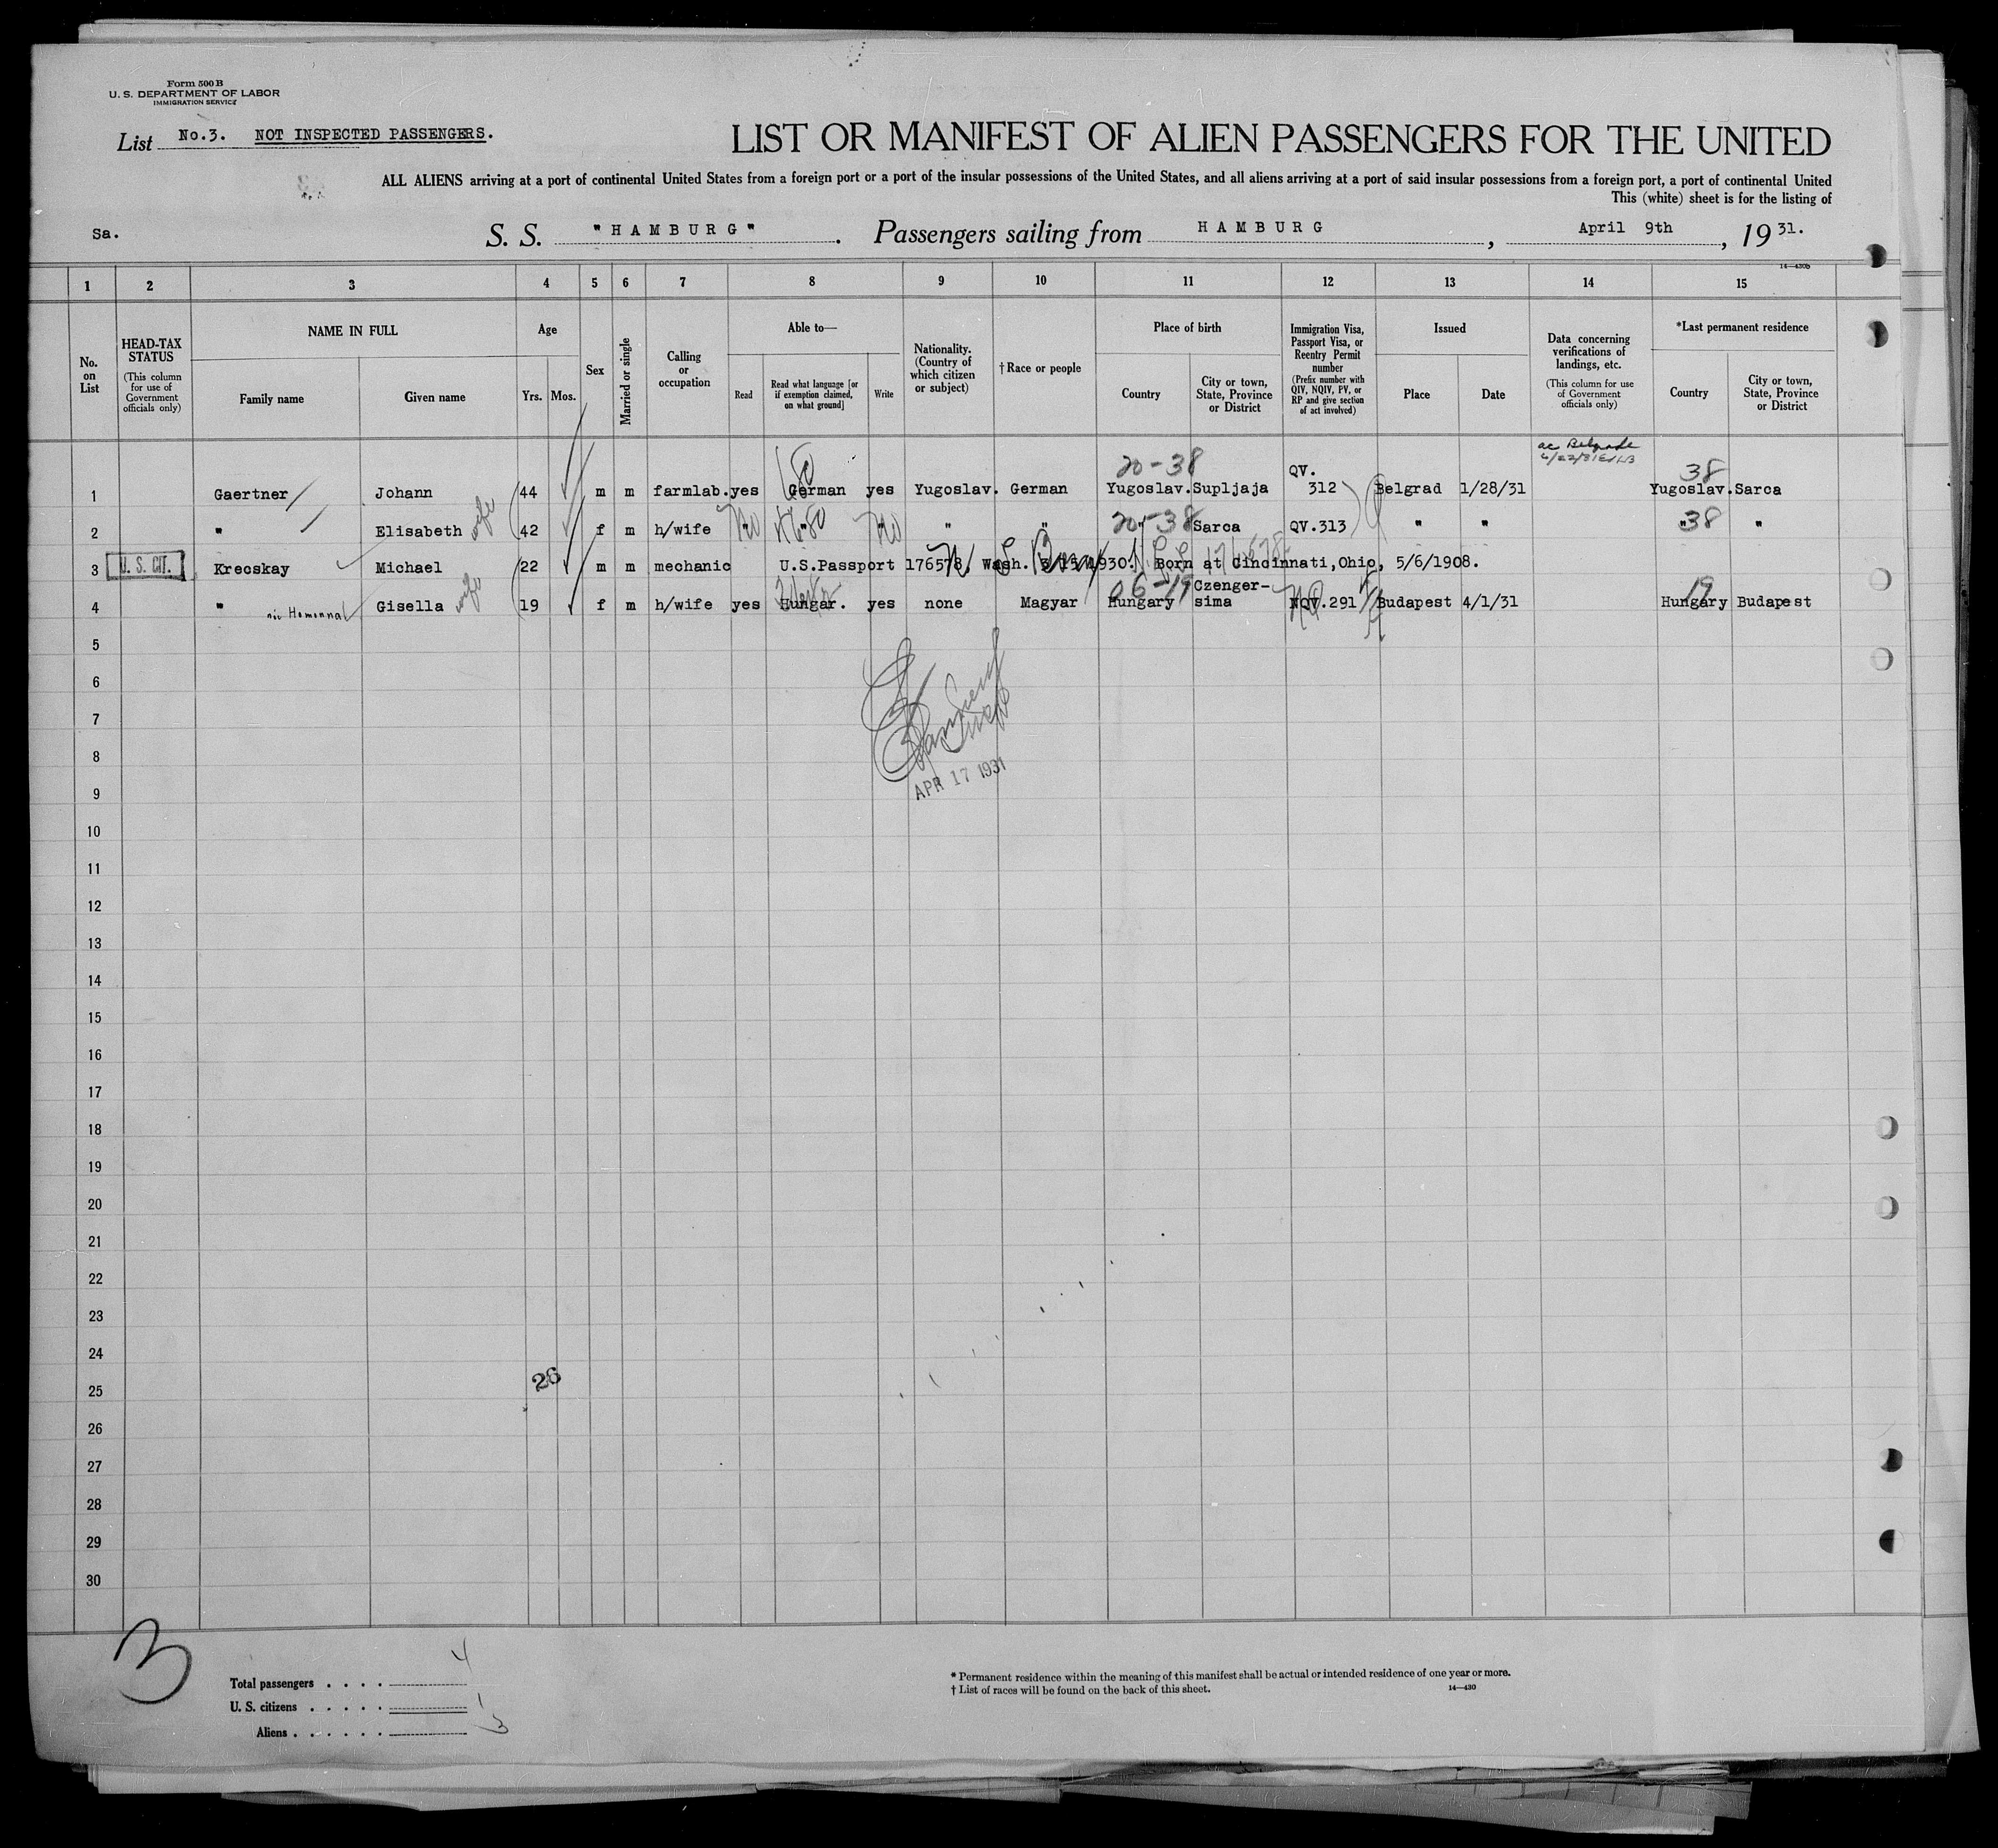 Form 500 B
U. S. DEPARTMENT OF LABOR
IMMIGRATION SERVICE
List No.3. NOT INSPECTED PASSENGERS.
LIST OR MANIFEST OF ALIEN PASSENGERS FOR THE UNITED
ALL ALIENS arriving at a port of continental United States from a foreign port or a port of the insular possessions of the United States, and all aliens arriving at a port of said insular possessions from a foreign port, a port of continental United
This (white) sheet is for the listing of
Sa. S. S. "HAMBURG". Passengers sailing from HAMBURG, April 9th, 19 31.
14—430b
1 2 3 4 5 6 7 8 9 10 11 12 13 14 15
No. on List
HEAD-TAX STATUS (This column for use of Government officials only)
NAME IN FULL Family name Given name
Age Yrs. Mos.
Sex
Married or single
Calling or occupation
Able to— Read Read what language [or if exemption claimed, on what ground] Write
Nationality. (Country of which citizen or subject)
†Race or people
Place of birth Country City or town, State, Province or District
Immigration Visa, Passport Visa, or Reentry Permit number (Prefix number with QIV, NQIV, PV, or RP and give section of act involved)
Issued Place Date
Data concerning verifications of landings, etc. (This column for use of Government officials only)
*Last permanent residence Country City or town, State, Province or District
ac Belgrade
20-38 38
1 Gaertner Johann 44 m m farmlab. yes German yes Yugoslav. German Yugoslav. Supljaja QV. 312 Belgrad 1/28/31 Yugoslav. Sarca
2 " Elisabeth wife 42 f m h/wife No No " " 20-38 Sarca QV.313 " " 38 "
3 U. S. CIT. Krecskay Michael 22 m m mechanic U.S.Passport 176578, Wash. 3/15/1930. Born at Cincinnati,Ohio, 5/6/1908.
06-19 19
4 " Gisella wife 19 f m h/wife yes Hungar. yes none Magyar Hungary Czenger-sima NQV.291 Budapest 4/1/31 Hungary Budapest
5
6
7
8
APR 17 1931
9
10
11
12
13
14
15
16
17
18
19
20
21
22
23
24
26
25
26
27
28
29
30
3
Total passengers . . . . 4
U. S. citizens . . . . . 1
Aliens . . . . . . 3
* Permanent residence within the meaning of this manifest shall be actual or intended residence of one year or more.
† List of races will be found on the back of this sheet.
14—430